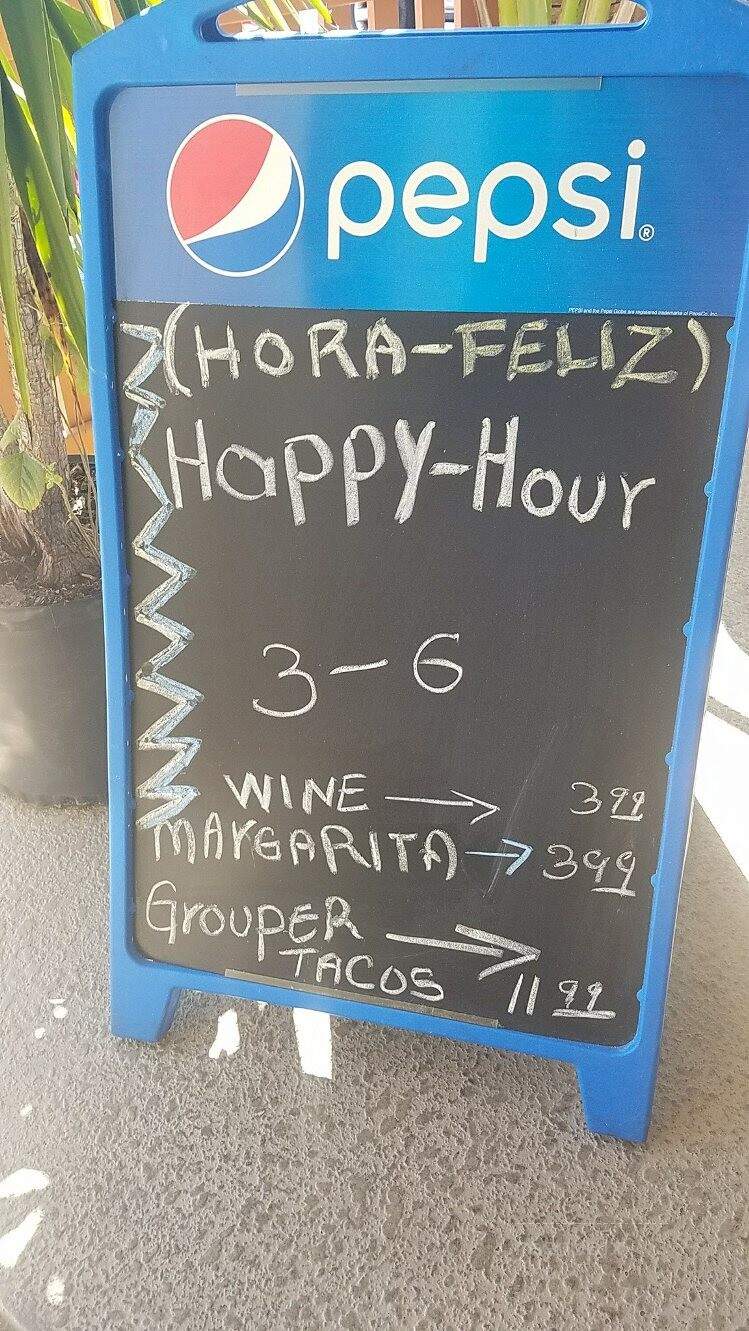 pepsi®
PEPSI and the Pepsi Globe are registered trademarks of PepsiCo, Inc.
(HORA-FELIZ)
Happy-Hour
3-6
WINE → 3 99
MARGARITA → 3 99
GROUPER →
TACOS 11 99